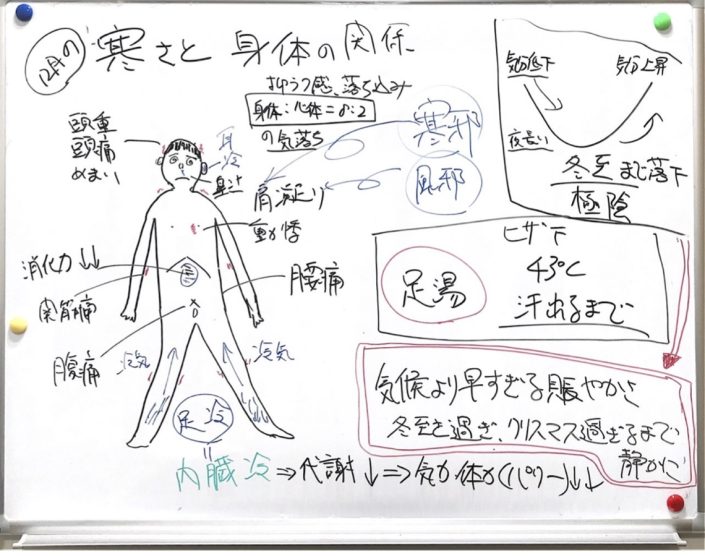 12月の
寒さと 身体の関係
抑うつ感、落ち込み
身体:心体=8:2
の気落ち
頭重
頭痛
めまい
耳
冷
鼻汁
肩凝り
動悸
寒邪
風邪
気分低下
気分上昇
夜長い
冬至まで落下
極陰
消化力↓↓
関節痛
腹痛
腰痛
冷気
冷気
足冷
足湯
ヒザ下
43℃
汗出るまで
気候より早すぎる賑やかさ
冬至を過ぎ、クリスマス過ぎるまで
静かに
内臓冷⇒代謝↓⇒気力・体力(パワー)↓↓